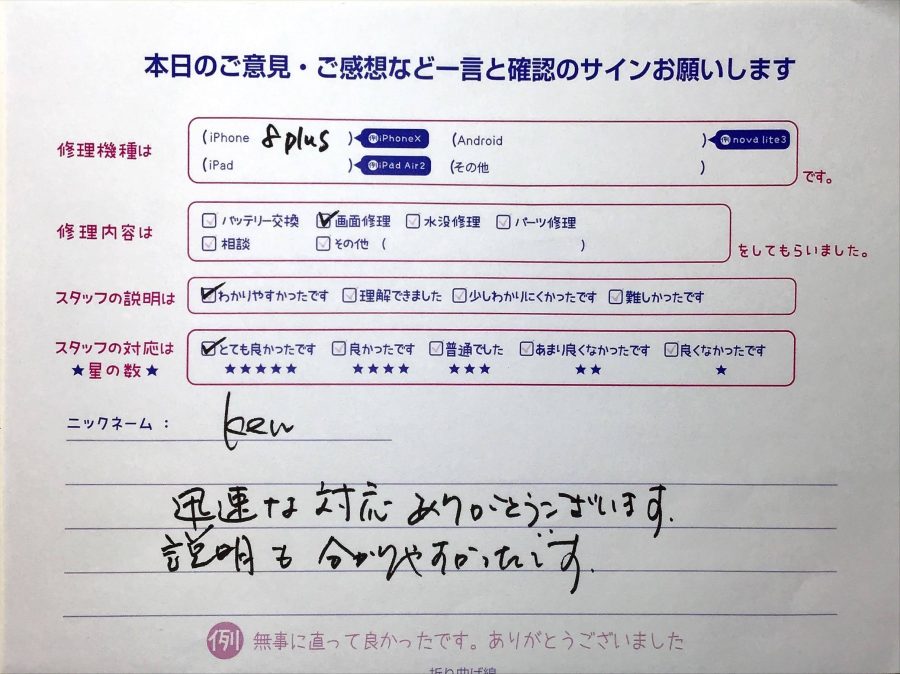 本日のご意見・ご感想など一言と確認のサインお願いします
修理機種は
(iPhone 8plus ) 例iPhoneX (Android ) 例nova lite3
(iPad ) 例iPad Air2 (その他 )
です。
修理内容は
バッテリー交換 画面修理 水没修理 パーツ修理
相談 その他 ( )
をしてもらいました。
スタッフの説明は わかりやすかったです 理解できました 少しわかりにくかったです 難しかったです
スタッフの対応は とても良かったです 良かったです 普通でした あまり良くなかったです 良くなかったです
★星の数★ ★★★★★ ★★★★ ★★★ ★★ ★
ニックネーム: ken
迅速な対応ありがとうございます.
説明も分かりやすかったです.
例 無事に直って良かったです。ありがとうございました
折り曲げ線